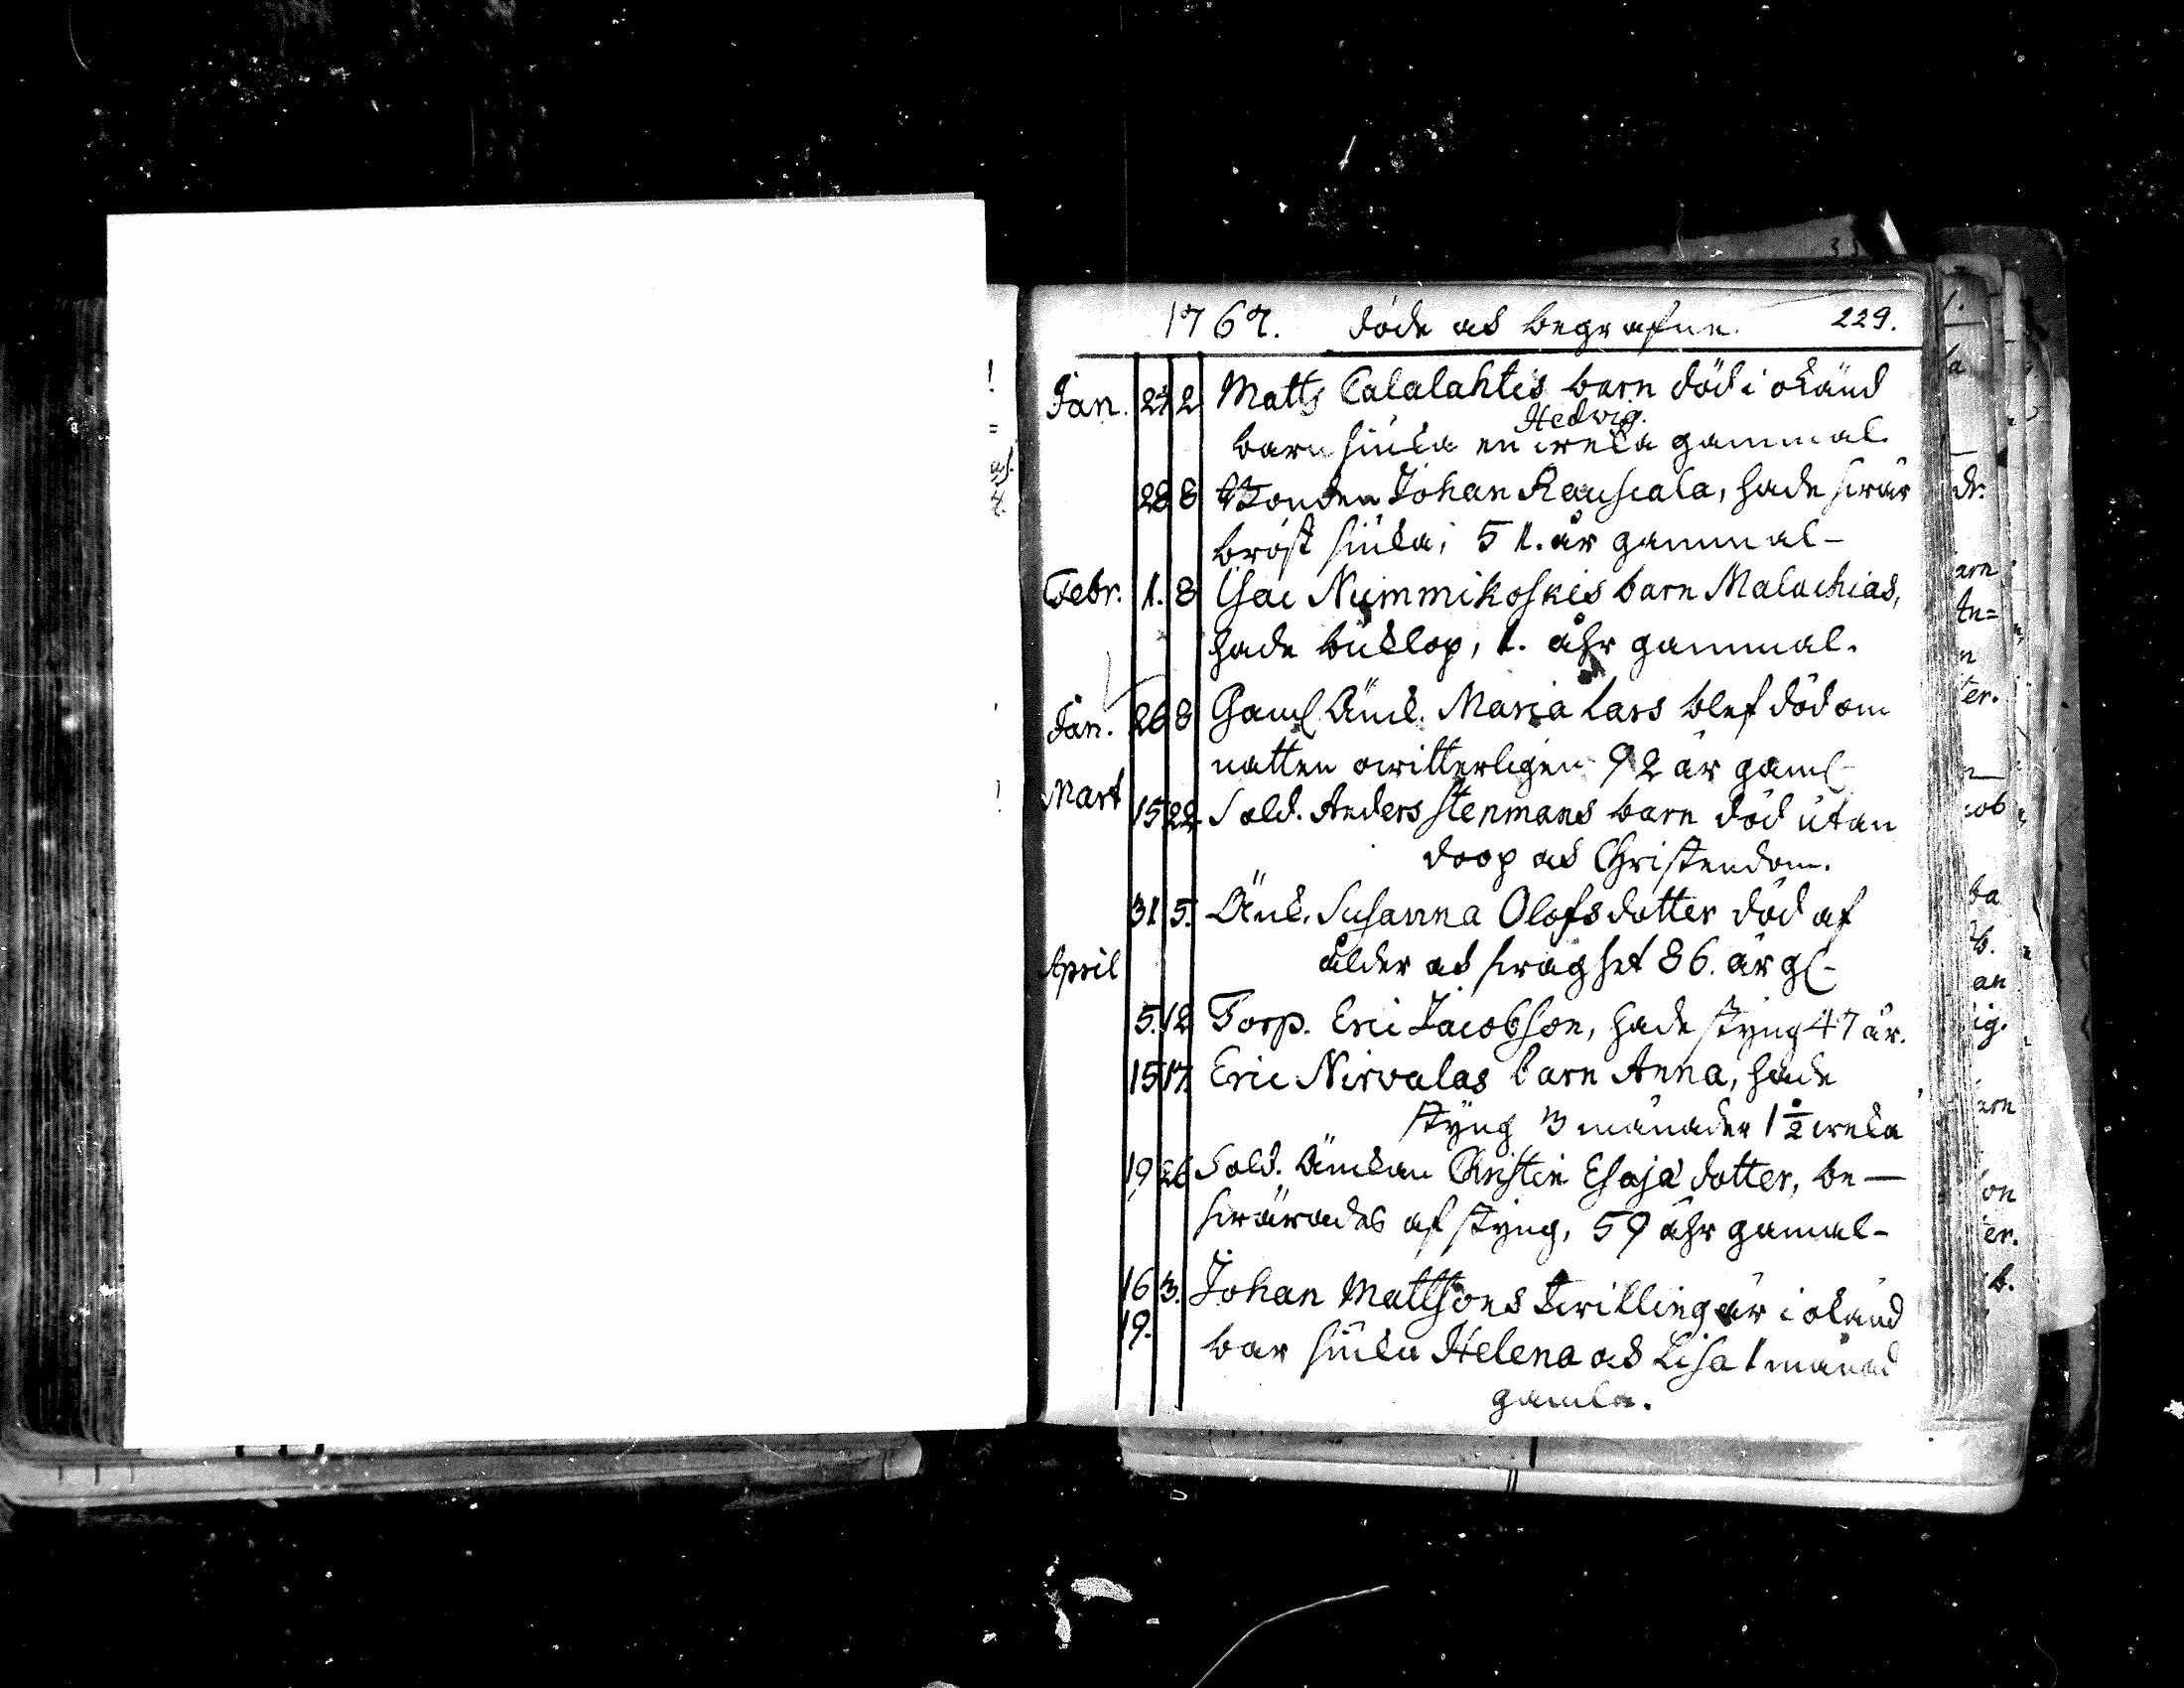 1767. Döde ock begrafne. 229.
Jan. 27 2 Matts Calalahtis barn död i okänd
Hedvig.
barn siuka en weka gammal.
28 8 Bonden Johan Rauscala, hade swår
bröst siuka, 51. år gammal-
Febr. 1. 8 Isac Nummikoskis barn Malachias,
hade buklop, 1. åhr gammal.
Jan. 26 8 Gaml Änk. Maria Lars blef död om
natten owitterligen 92 år gaml-
Mart 15 22. Sold. Anders Stenmans barn död utan
doop ock Christendom.
31 5. Änk. Susanna Olofsdotter död af
ålder ock swaghet 86. år gl-
April
5. 12 Torp. Eric Jacobson, hade styng 47 år.
15 17. Eric Nirvalas barn Anna, hade
styng 3 månader 1½ weka
19 26 Sold. Änckan Christin Esaja dotter, be-
swärades af styng, 59 åhr gamal-
16 3. Johan Mattsons twillingar i okänd
19.
bar siuka Helena ock Lisa 1 månad
gamla.